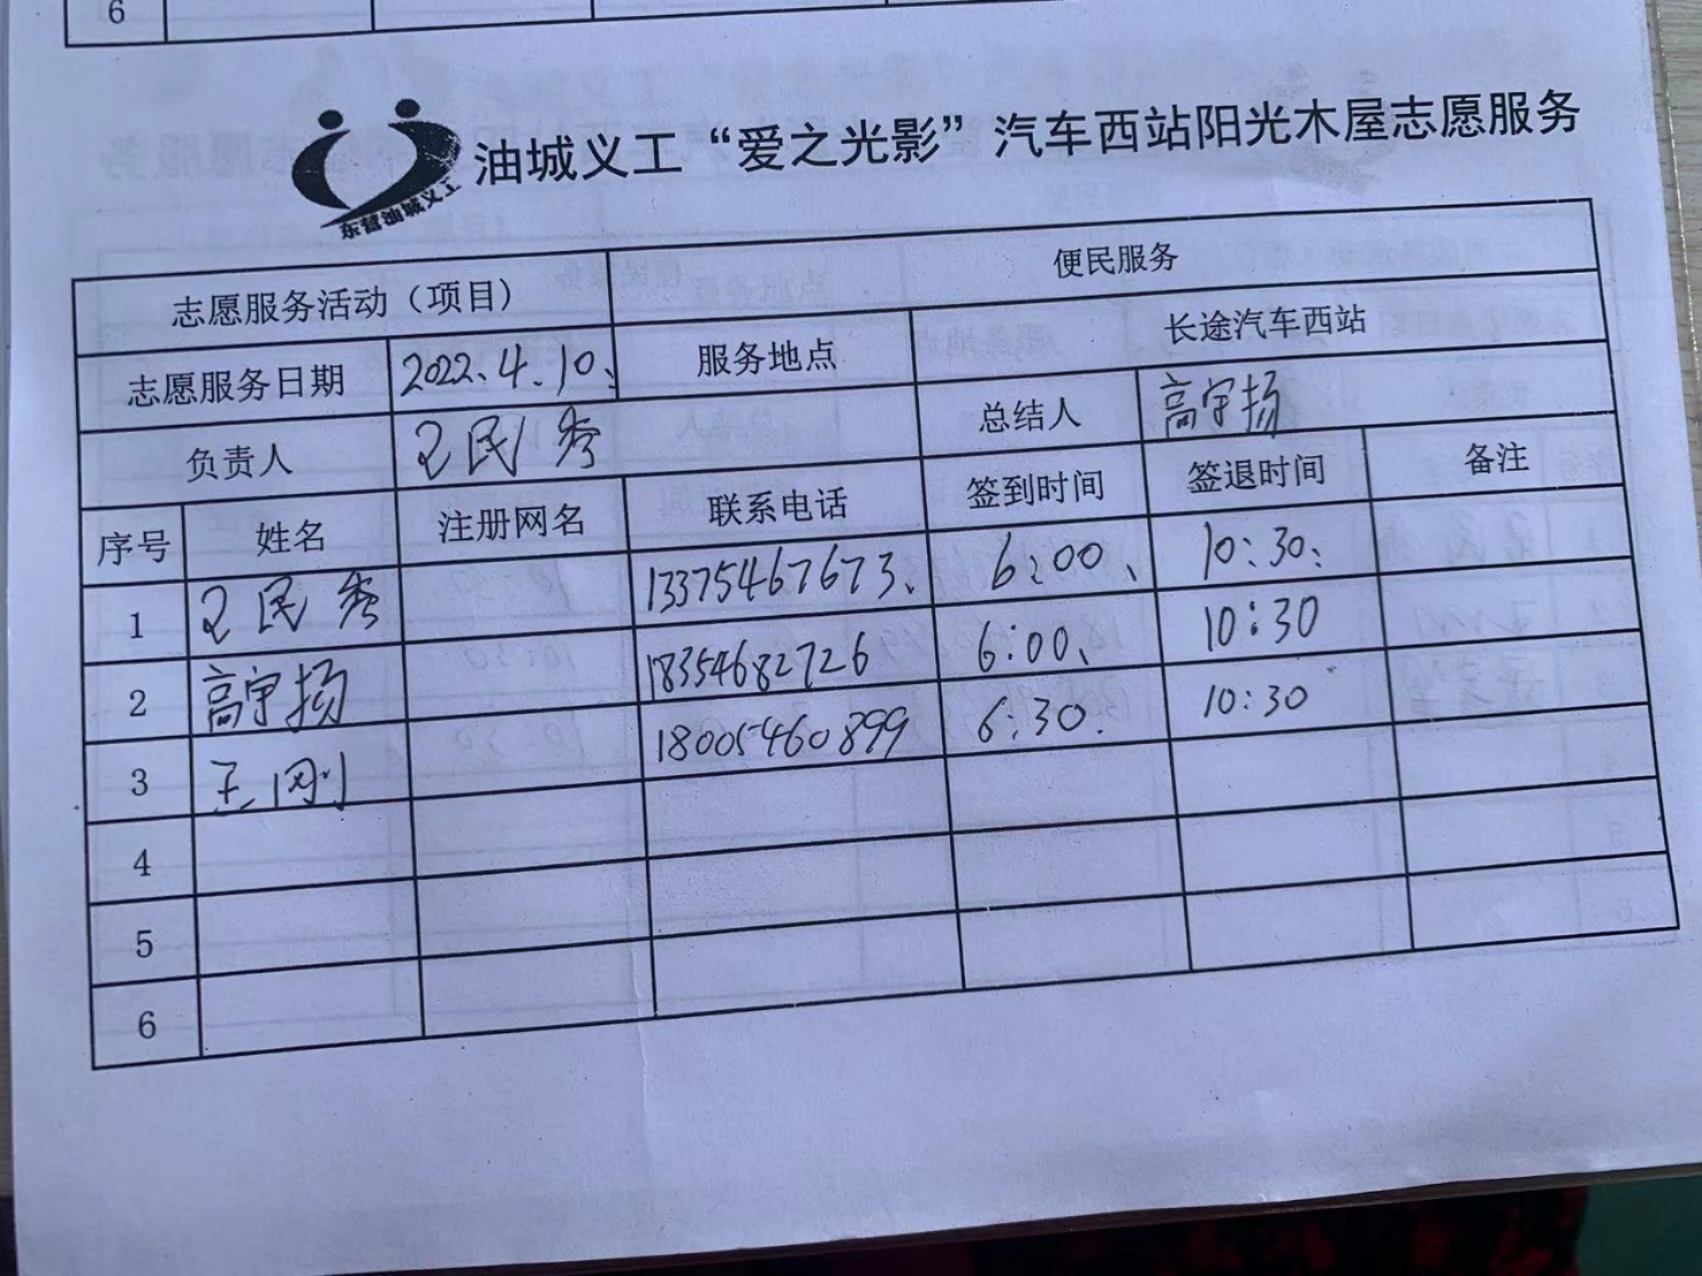 6
油城义工“爱之光影”汽车西站阳光木屋志愿服务
东营油城义工
志愿服务活动（项目） 便民服务
志愿服务日期 2022.4.10、 服务地点 长途汽车西站
负责人 王民秀 总结人 高宇扬
序号 姓名 注册网名 联系电话 签到时间 签退时间 备注
1 王民秀 13375467673、 6:00、 10:30:
2 高宇扬 18354682726 6:00、 10:30
3 王刚 18005460899 6:30. 10:30
4
5
6